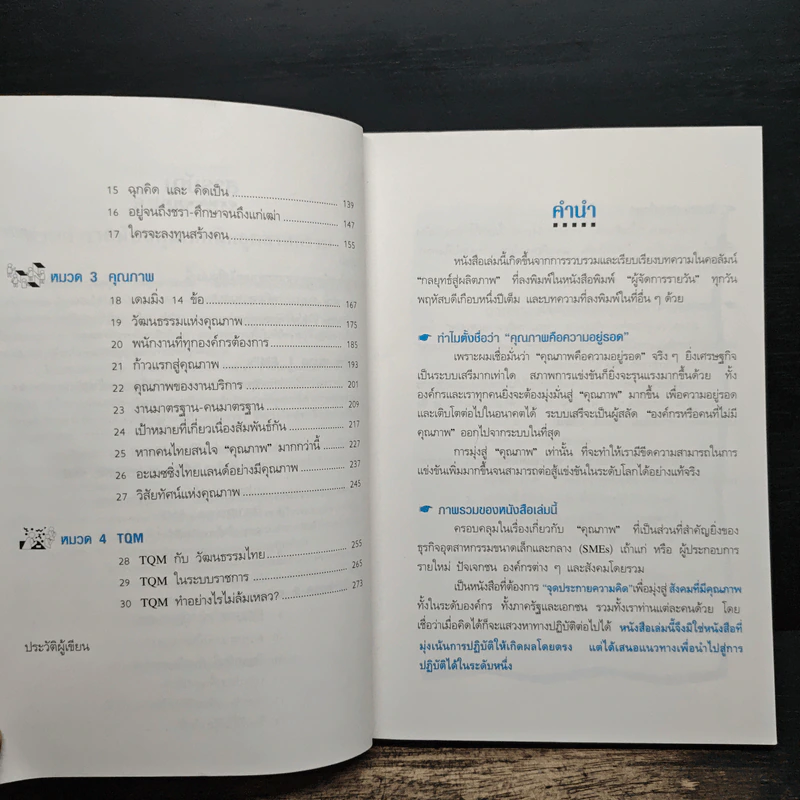 15 ฉุกคิด และ คิดเป็น 139
16 อยู่จนถึงชรา-ศึกษาจนถึงแก่เฒ่า 147
17 ใครจะลงทุนสร้างคน 155
หมวด 3 คุณภาพ
18 เดมมิ่ง 14 ข้อ 167
19 วัฒนธรรมแห่งคุณภาพ 175
20 พนักงานที่ทุกองค์กรต้องการ 185
21 ก้าวแรกสู่คุณภาพ 193
22 คุณภาพของงานบริการ 201
23 งานมาตรฐาน-คนมาตรฐาน 209
24 เป้าหมายที่เกี่ยวเนื่องสัมพันธ์กัน 217
25 หากคนไทยสนใจ "คุณภาพ" มากกว่านี้ 227
26 อะเมซซิ่งไทยแลนด์อย่างมีคุณภาพ 237
27 วิสัยทัศน์แห่งคุณภาพ 245
หมวด 4 TQM
28 TQM กับ วัฒนธรรมไทย 255
29 TQM ในระบบราชการ 265
30 TQM ทำอย่างไรไม่ล้มเหลว? 273
ประวัติผู้เขียน
คำนำ
หนังสือเล่มนี้เกิดขึ้นจากการรวบรวมและเรียบเรียงบทความในคอลัมน์
"กลยุทธ์สู่ผลิตภาพ" ที่ลงพิมพ์ในหนังสือพิมพ์ "ผู้จัดการรายวัน" ทุกวัน
พฤหัสบดีเกือบหนึ่งปีเต็ม และบทความที่ลงพิมพ์ในที่อื่น ๆ ด้วย
ทำไมตั้งชื่อว่า "คุณภาพคือความอยู่รอด"
เพราะผมเชื่อมั่นว่า "คุณภาพคือความอยู่รอด" จริง ๆ ยิ่งเศรษฐกิจ
เป็นระบบเสรีมากเท่าใด สภาพการแข่งขันก็ยิ่งจะรุนแรงมากขึ้นด้วย ทั้ง
องค์กรและเราทุกคนยิ่งจะต้องมุ่งมั่นสู่ "คุณภาพ" มากขึ้น เพื่อความอยู่รอด
และเติบโตต่อไปในอนาคตได้ ระบบเสรีจะเป็นผู้สลัด "องค์กรหรือคนที่ไม่มี
คุณภาพ" ออกไปจากระบบในที่สุด
การมุ่งสู่ "คุณภาพ" เท่านั้น ที่จะทำให้เรามีขีดความสามารถในการ
แข่งขันเพิ่มมากขึ้นจนสามารถต่อสู้แข่งขันในระดับโลกได้อย่างแท้จริง
ภาพรวมของหนังสือเล่มนี้
ครอบคลุมในเรื่องเกี่ยวกับ "คุณภาพ" ที่เป็นส่วนที่สำคัญยิ่งของ
ธุรกิจอุตสาหกรรมขนาดเล็กและกลาง (SMEs) เถ้าแก่ หรือ ผู้ประกอบการ
รายใหม่ ปัจเจกชน องค์กรต่าง ๆ และสังคมโดยรวม
เป็นหนังสือที่ต้องการ "จุดประกายความคิด"เพื่อมุ่งสู่ สังคมที่มีคุณภาพ
ทั้งในระดับองค์กร ทั้งภาครัฐและเอกชน รวมทั้งเราท่านแต่ละคนด้วย โดย
เชื่อว่าเมื่อคิดได้ก็จะแสวงหาทางปฏิบัติต่อไปได้ หนังสือเล่มนี้จึงมิใช่หนังสือที่
มุ่งเน้นการปฏิบัติให้เกิดผลโดยตรง แต่ได้เสนอแนวทางเพื่อนำไปสู่การ
ปฏิบัติได้ในระดับหนึ่ง